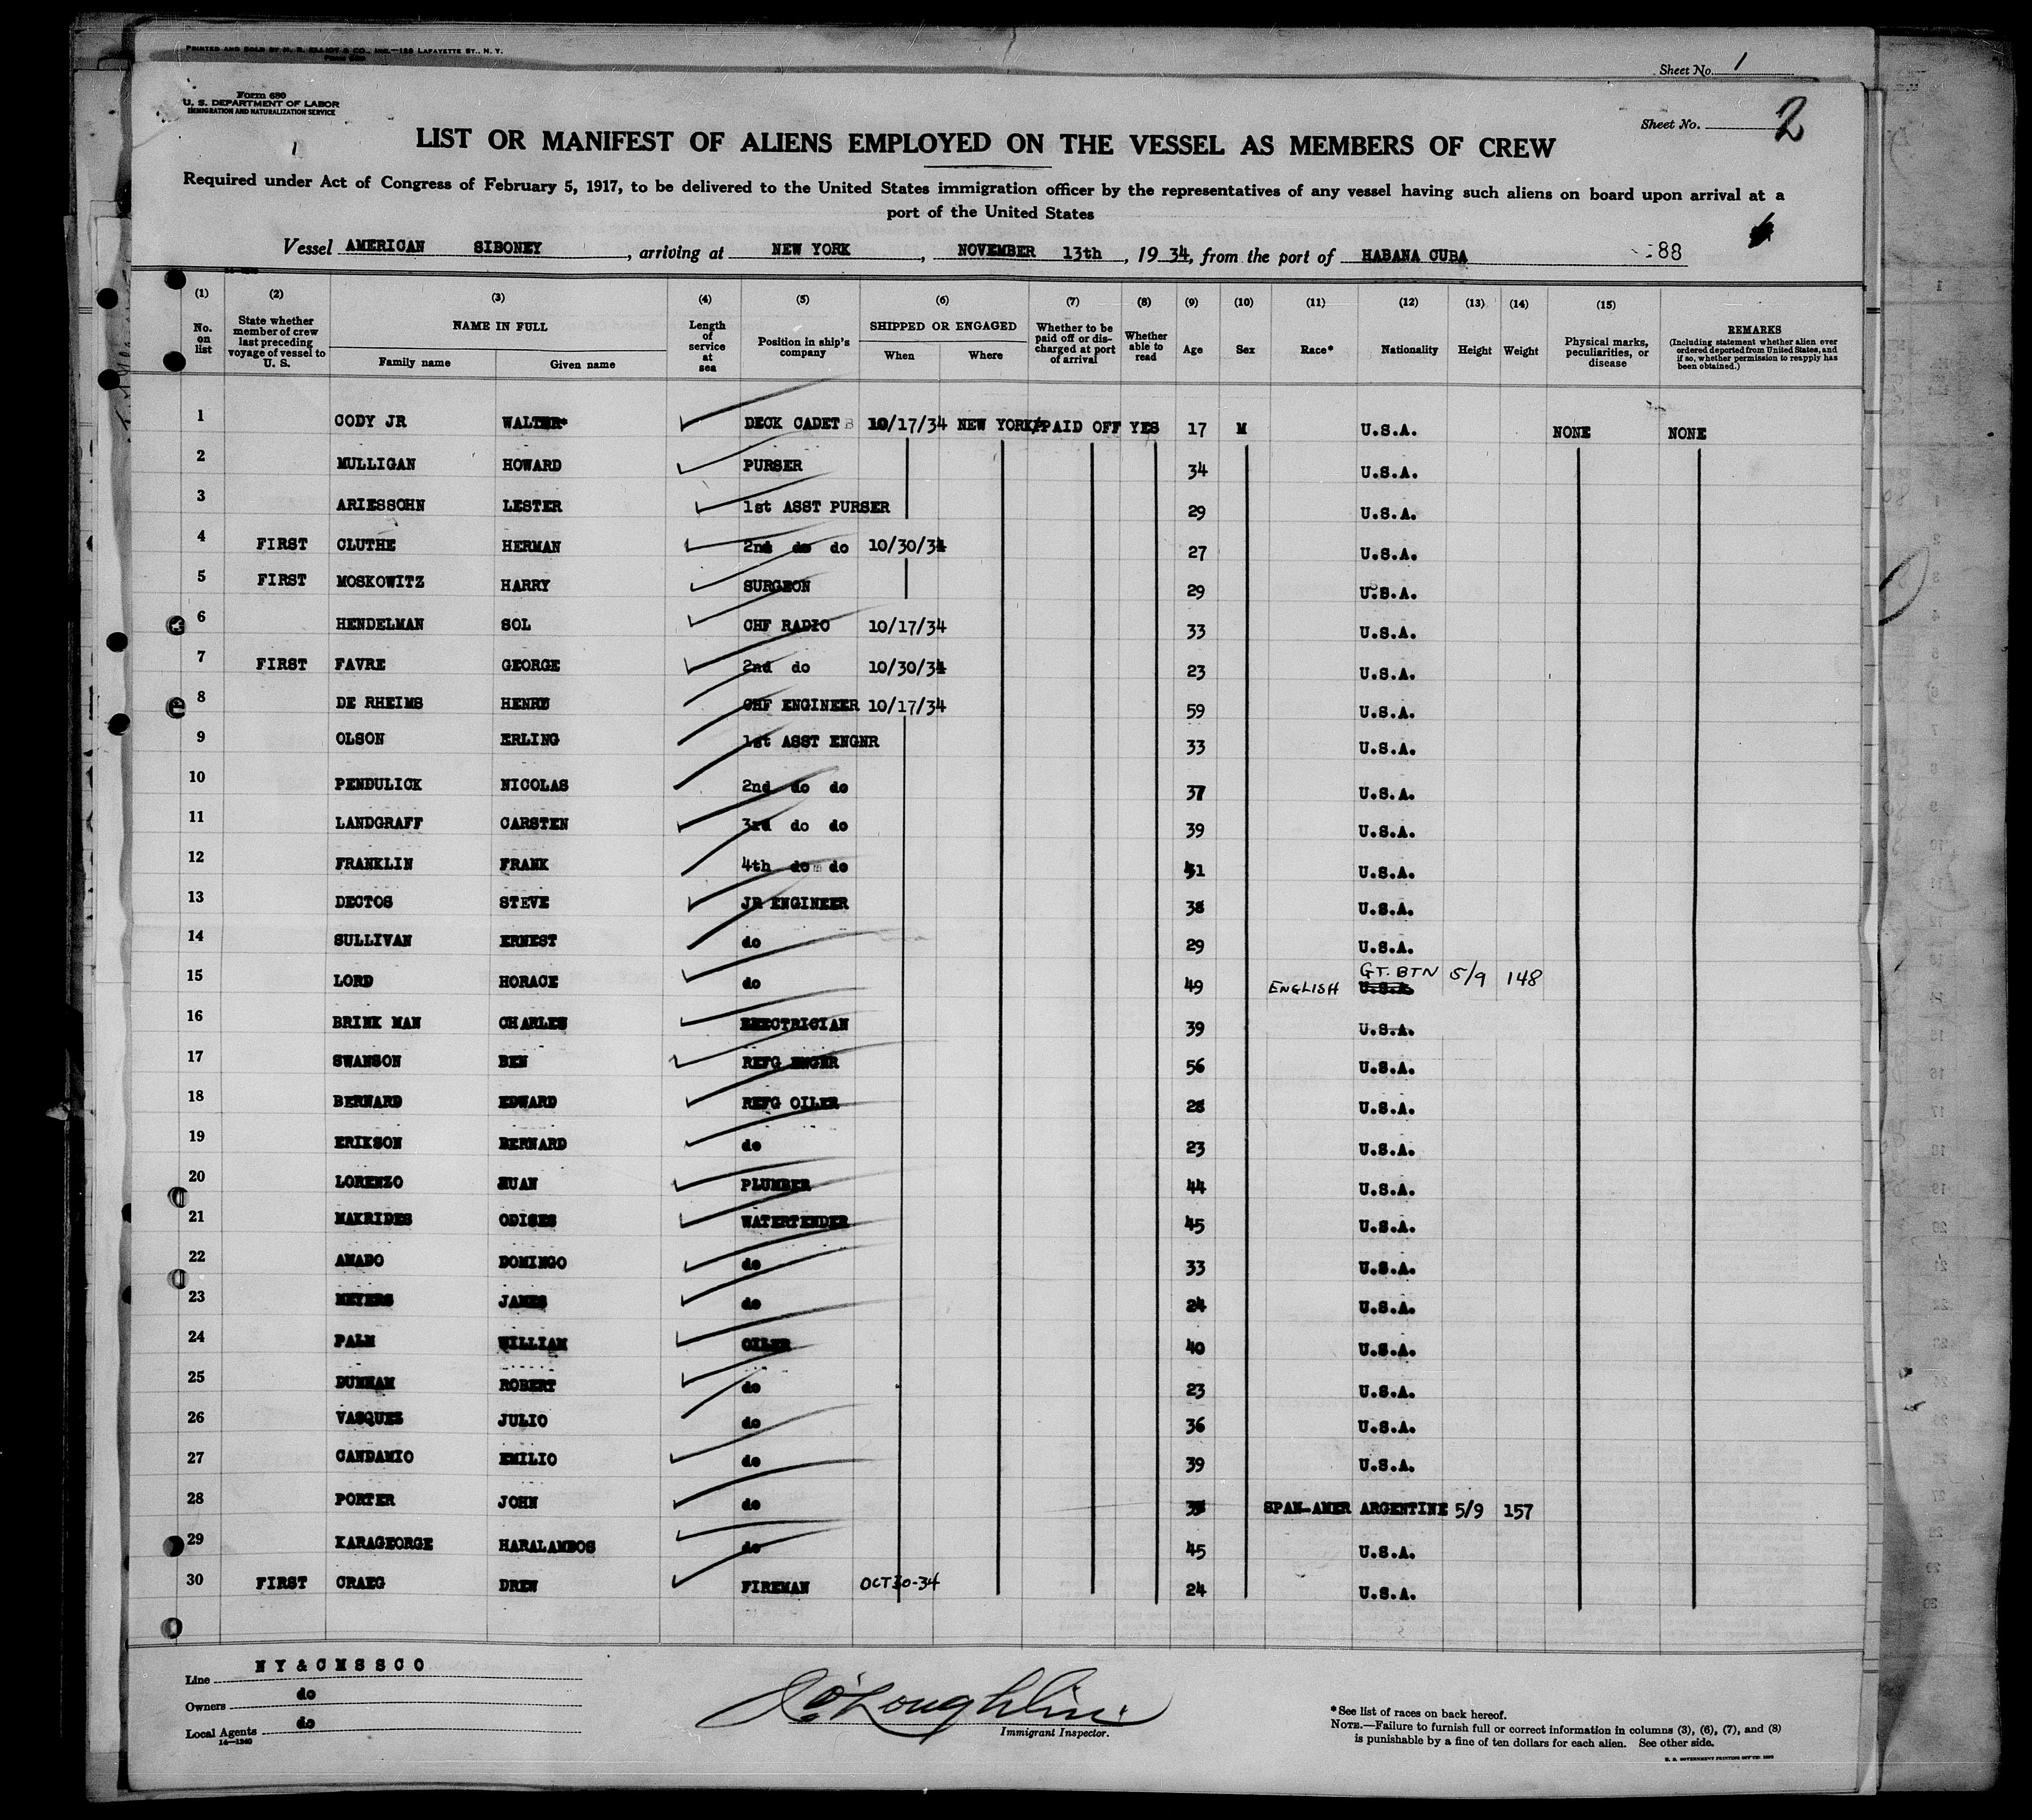 PRINTED AND SOLD BY M. R. ELLIOT & CO., INC.—129 LAFAYETTE ST., N. Y.
Sheet No. 1
Form 680
U. S. DEPARTMENT OF LABOR
IMMIGRATION AND NATURALIZATION SERVICE
Sheet No. 2
1
LIST OR MANIFEST OF ALIENS EMPLOYED ON THE VESSEL AS MEMBERS OF CREW
Required under Act of Congress of February 5, 1917, to be delivered to the United States immigration officer by the representatives of any vessel having such aliens on board upon arrival at a
port of the United States
Vessel AMERICAN SIBONEY, arriving at NEW YORK, NOVEMBER 13th, 1934, from the port of HABANA CUBA 88
(1) (2) (3) (4) (5) (6) (7) (8) (9) (10) (11) (12) (13) (14) (15)
No. on list
State whether member of crew last preceding voyage of vessel to U. S.
NAME IN FULL
Family name Given name
Length of service at sea
Position in ship's company
SHIPPED OR ENGAGED
When Where
Whether to be paid off or discharged at port of arrival
Whether able to read
Age
Sex
Race*
Nationality
Height
Weight
Physical marks, peculiarities, or disease
REMARKS
(Including statement whether alien ever ordered deported from United States, and if so, whether permission to reapply has been obtained.)
1 CODY JR WALTER DECK CADET 10/17/34 NEW YORK PAID OFF YES 17 M U.S.A. NONE NONE
2 MULLIGAN HOWARD PURSER 34 U.S.A.
3 ARIESSOHN LESTER 1st ASST PURSER 29 U.S.A.
4 FIRST CLUTHE HERMAN 2nd do do 10/30/34 27 U.S.A.
5 FIRST MOSKOWITZ HARRY SURGEON 29 U.S.A.
6 HENDELMAN SOL CHF RADIO 10/17/34 33 U.S.A.
7 FIRST FAVRE GEORGE 2nd do 10/30/34 23 U.S.A.
8 DE RHEIMS HENRY CHF ENGINEER 10/17/34 59 U.S.A.
9 OLSON ERLING 1st ASST ENGNR 33 U.S.A.
10 PENDULICK NICOLAS 2nd do do 37 U.S.A.
11 LANDGRAFF CARSTEN 3rd do do 39 U.S.A.
12 FRANKLIN FRANK 4th do do U.S.A.
13 DECTOS STEVE JR ENGINEER U.S.A.
14 SULLIVAN ERNEST do 29 U.S.A.
15 LORD HORACE do 49 ENGLISH GT. BTN U.S.A. 5/9 148
16 BRINK MAN CHARLES ELECTRICIAN 39 U.S.A.
17 SWANSON BEN REFG ENGNR 56 U.S.A.
18 BERNARD EDWARD REFG OILER U.S.A.
19 ERIKSON BERNARD do 23 U.S.A.
20 LORENZO JUAN PLUMBER 44 U.S.A.
21 MAKRIDES ODISES WATERTENDER 45 U.S.A.
22 AMADO DOMINGO do 33 U.S.A.
23 MEYERS JAMES do 24 U.S.A.
24 PALM WILLIAM OILER 40 U.S.A.
25 DUNHAM ROBERT do 23 U.S.A.
26 VASQUEZ JULIO do 36 U.S.A.
27 CANDAMIO EMILIO do 39 U.S.A.
28 PORTER JOHN do SPAN-AMER ARGENTINE 5/9 157
29 KARAGEORGE HARALAMBOS do 45 U.S.A.
30 FIRST CRAEG DREN FIREMAN OCT 30-34 24 U.S.A.
Line N Y & C M S S C O
Owners do
Local Agents do
14—1240
O'Loughlin
Immigrant Inspector.
*See list of races on back hereof.
NOTE.—Failure to furnish full or correct information in columns (3), (6), (7), and (8)
is punishable by a fine of ten dollars for each alien. See other side.